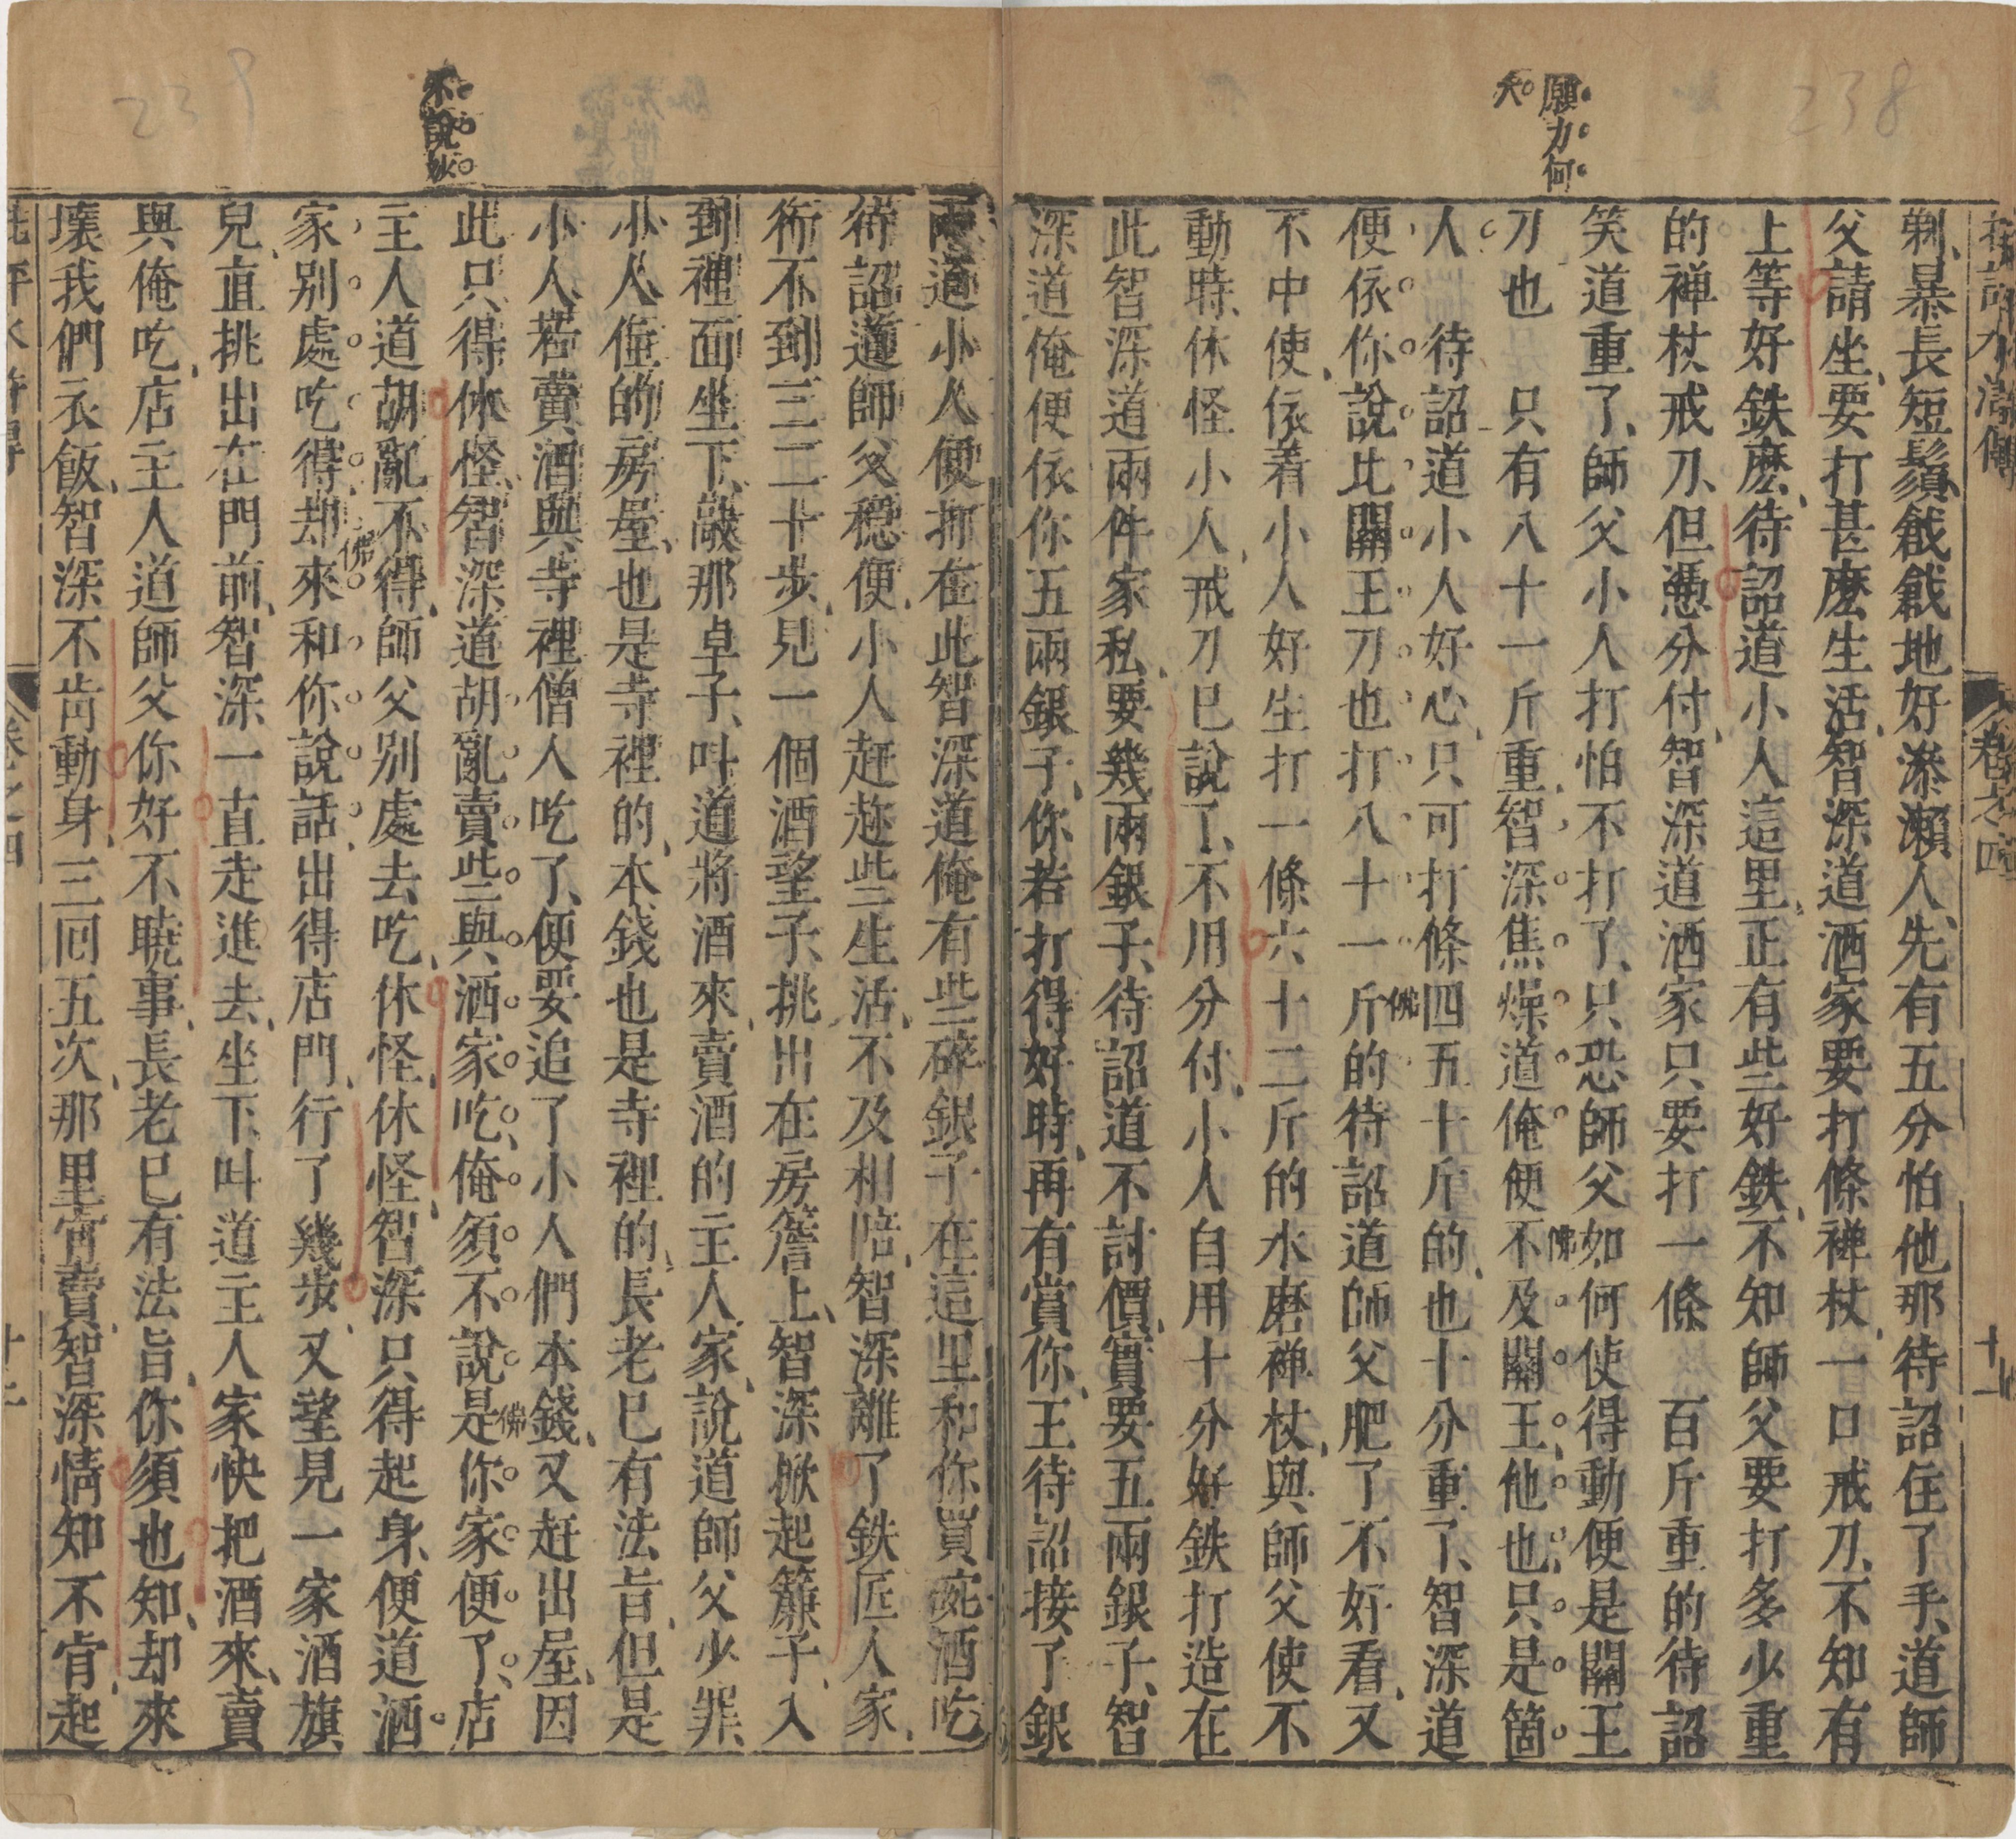 238
願力何
大
批評水滸傳
卷之四
十一
剃暴長短鬚戧戧地好滲瀨人先有五分怕他那待詔住了手道師
父請坐要打甚麽生活智深道洒家要打條禪杖一口戒刀不知有
上等好鉄麽待詔道小人這里正有些好鉄不知師父要打多少重
的禪杖戒刀但憑分付智深道洒家只要打一條百斤重的待詔
笑道重了師父小人打怕不打了只恐師父如何使得動便是關王
刀也只有八十一斤重智深焦燥道俺便不及關王他也只是箇
佛
人待詔道小人好心只可打條四五十斤的也十分重了智深道
便依你說比關王刀也打八十一斤的待詔道師父肥了不好看又
佛
不中使依着小人好生打一條六十二斤的水磨禪杖與師父使不
動時休怪小人戒刀已說了不用分付小人自用十分好鉄打造在
此智深道兩件家私要幾兩銀子待詔道不討價實要五兩銀子智
深道俺便依你五兩銀子你若打得好時再有賞你王待詔接了銀
239
不說妙
兩道小人便打在此智深道俺有些碎銀子在這里和你買碗酒吃
待詔道師父穩便小人赶趂些生活不及相陪智深離了鉄匠人家
行不到三二十步見一個酒望子挑出在房簷上智深掀起簾子入
到裡面坐下敲那卓子叫道將酒來賣酒的主人家說道師父少罪
小人住的房屋也是寺裡的本錢也是寺裡的長老已有法旨但是
小人若賣酒與寺裡僧人吃了便要追了小人們本錢又赶出屋因
此只得休怪智深道胡亂賣些與洒家吃俺須不說是你家便了店
佛
主人道胡亂不得師父別處去吃休怪休怪智深只得起身便道洒
家別處吃得却來和你說話出得店門行了幾步又望見一家酒旗
佛
兒直挑出在門前智深一直走進去坐下叫道主人家快把酒來賣
與俺吃店主人道師父你好不曉事長老已有法旨你須也知却來
壞我們衣飯智深不肯動身三回五次那里肯賣智深情知不肯起
批評水滸傳
卷之四